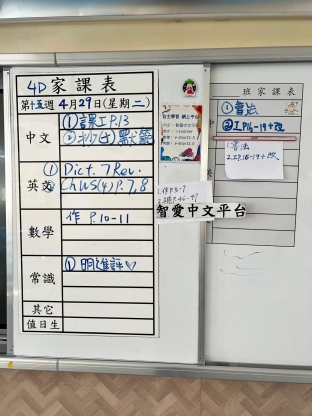 4D 家課表
第十五週 4月29日(星期二)
中文
①課工P.13
②
默
英文
① Dict. 7 Rev.
② Ch WS(4) P.7,8
數學
作 P.10-11
常識
① 明進評
其它
值日生
智愛中文平台
班家課表
①書法
②工P.16-19+改
1.書法
2.工P.16-19+改